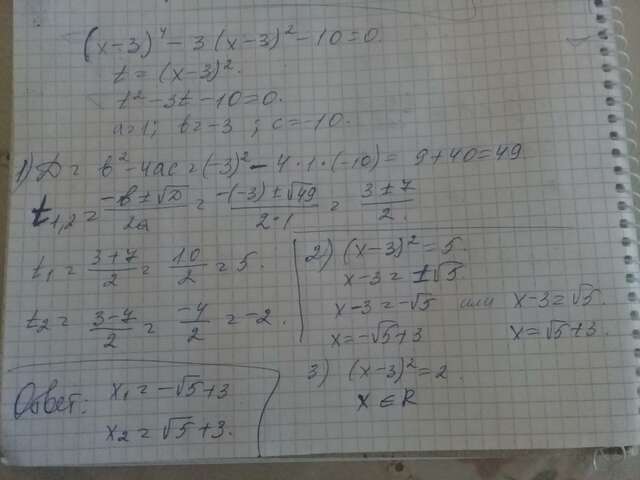 (x-3)⁴ - 3(x-3)² - 10 = 0.
t = (x-3)².
t² - 3t - 10 = 0.
a=1; b=-3; c=-10.
1) D = b² - 4ac = (-3)² - 4·1·(-10) = 9+40=49.
t₁,₂ = (-b±√D)/2a = (-(-3)±√49)/2·1 = (3±7)/2.
t₁ = (3+7)/2 = 10/2 = 5.
t₂ = (3-7)/2 = -4/2 = -2.
2) (x-3)² = 5.
x-3 = ±√5
x-3 = -√5 или x-3 = √5.
x = -√5+3 x = √5+3.
3) (x-3)² = 2.
x ∈ R
Ответ: x₁ = -√5+3
x₂ = √5+3.